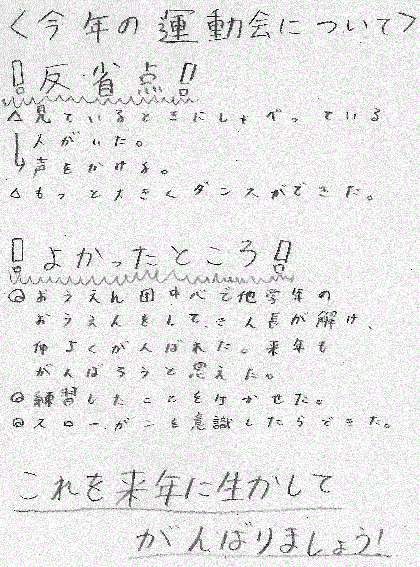 <今年の運動会について>
!反省点!
△見ているときにしゃべっている
人がいた。
↳声をかける。
△もっと大きくダンスができた。
!よかったところ!
◎おうえん団中心で他学年の
おうえんをして、きん長が解け、
仲よくがんばれた。来年も
がんばろうと思えた。
◎練習したことを生かせた。
◎スローガンを意識したらできた。
これを来年に生かして
がんばりましょう!